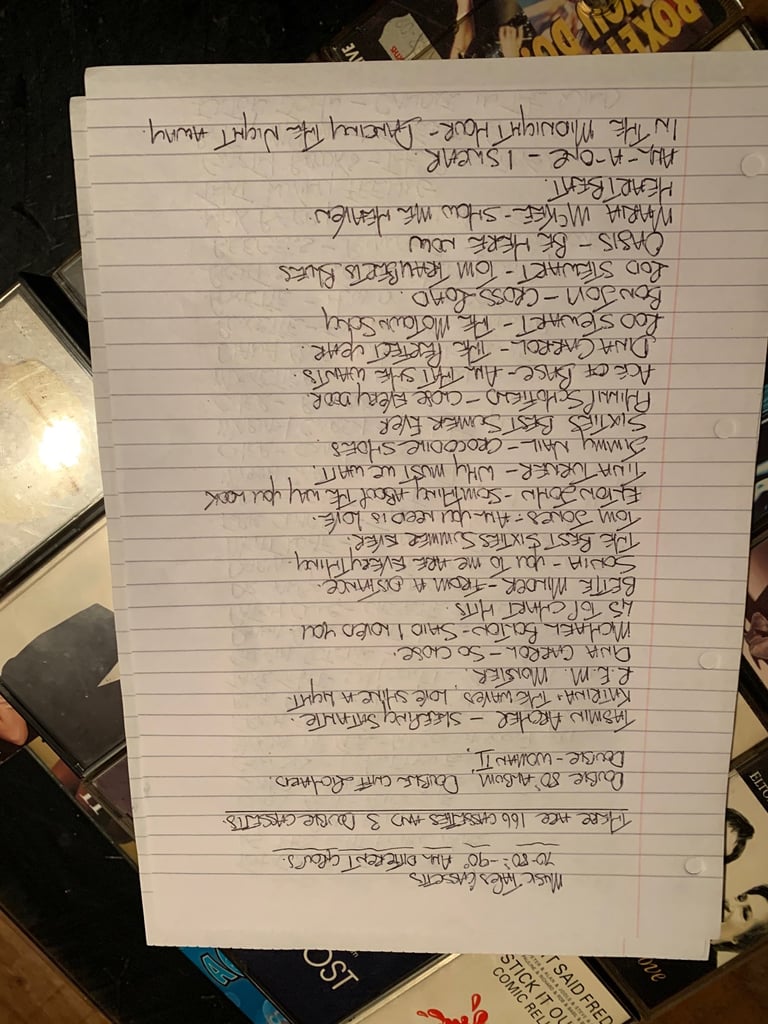 MUSIC TAPES CASSETTS
70-80s-90s ALL DIFFERENT GROUPS.
THERE ARE 166 CASSETTES AND 3 DOUBLE CASSETTS.
DOUBLE 80s ALBUM, DOUBLE CLIFF RICHARD.
DOUBLE - WOMAN II,
TASMIN ARCHER - SLEEPING SATALITE.
KATRINA + THE WAVES, LOVE SHINE A LIGHT.
R.E.M. MONSTER.
DINA CARROL - SO CLOSE.
MICHAEL BOLTON - SAID I LOVED YOU
45 TOP CHART HITS.
BETTE MILDER - FROM A DISTANCE.
SONIA - YOU TO ME ARE EVERYTHING.
THE BEST SIXTIES SUMMER EVER.
TOM JONES - ALL YOU NEED IS LOVE.
ELTON JOHN - SOMETHING ABOUT THE WAY YOU LOOK
TINA TURNER - WHY MUST WE WAIT.
JIMMY NAIL - CROCODILE SHOES
SIXTIES BEST SUMER EVER
PHILLIP SCHOFIELD - CLOSE EVERY DOOR
ACE OF BASE - ALL THAT SHE WANTS.
DINA CARROL - THE PERFECT YEAR.
ROD STEWART - THE MOTOWN SONG
BON JOVI - CROSS ROAD.
ROD STEWART - TOM TRAUBERTS BLUES
OASIS - BE HERE NOW
MARIA McKEE - SHOW ME HEAVEN
HEARTBEAT.
ALL-4-ONE - I SWEAR
IN THE MIDNIGHT HOUR - DANCING THE NIGHT AWAY.
ROXETTE
YOU DO
LIVE
II
ELTO
OST
IT SAID FRED
STICK IT OU
COMIC RELI
ove